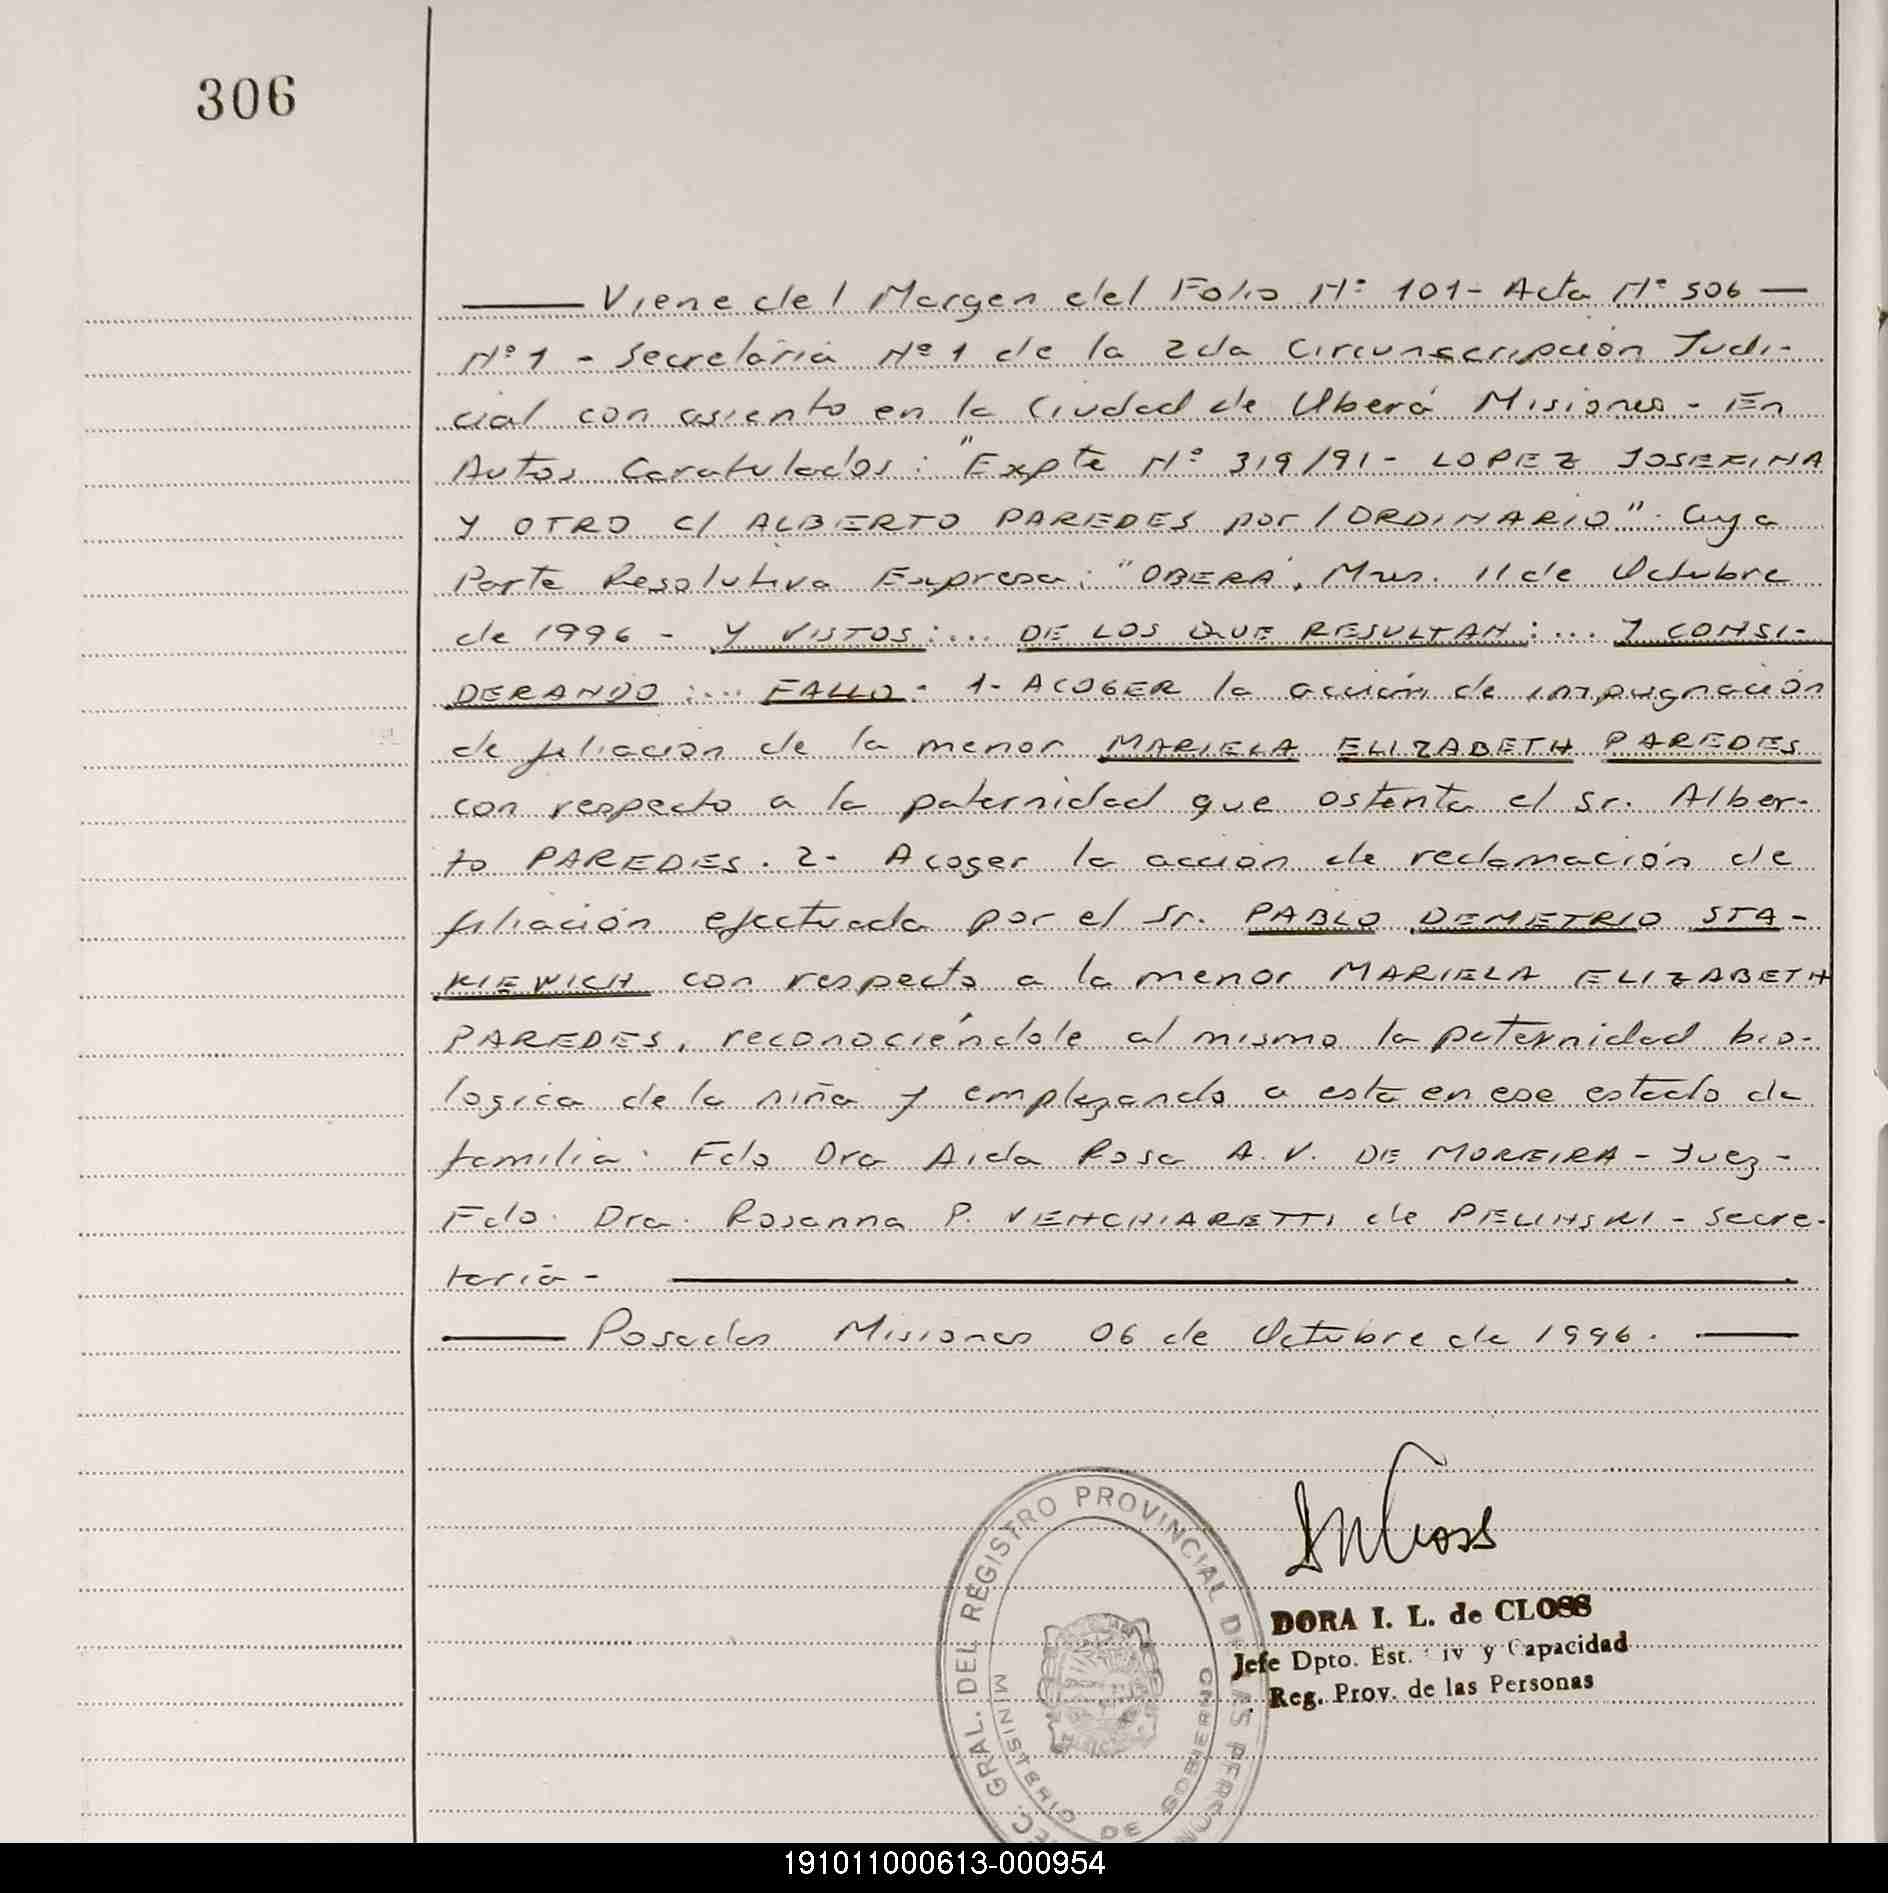 306
Viene del Margen del Folio Nº 101 - Acta Nº 506 —
Nº 1 - Secretaria Nº 1 de la 2da Circunscripción Judi-
cial con asiento en la Ciudad de Oberá Misiones - En
Autos Caratulados: "Expte Nº 319/91 - LOPEZ JOSEFINA
Y OTRO C/ ALBERTO PAREDES por / ORDINARIO". Cuya
Parte Resolutiva Expresa: "OBERÁ, Mnes. 11 de Octubre
de 1996 - Y VISTOS:... DE LOS QUE RESULTAN:... Y CONSI-
DERANDO:... FALLO: 1- ACOGER la acción de impugnación
de filiación de la menor MARIELA ELIZABETH PAREDES
con respecto a la paternidad que ostenta el Sr. Alber-
to PAREDES. 2- Acoger la acción de reclamación de
filiación efectuada por el Sr. PABLO DEMETRIO STA-
KIEWICH con respecto a la menor MARIELA ELIZABETH
PAREDES, reconociéndole al mismo la paternidad bio-
logica de la niña y emplazando a esta en ese estado de
familia. Fdo Dra Aida Rosa A. V. DE MOREIRA - Juez -
Fdo. Dra. Rosanna P. VENCHIARETTI de PIELINSKI - Secre-
taria -
Posadas Misiones 06 de Octubre de 1996.
DORA I. L. de CLOSS
Jefe Dpto. Est. Civ y Capacidad
Reg. Prov. de las Personas
GRAL. DEL REGISTRO PROVINCIAL DE LAS PERSON
MINISTERIO DE GOBIERNO
191011000613-000954